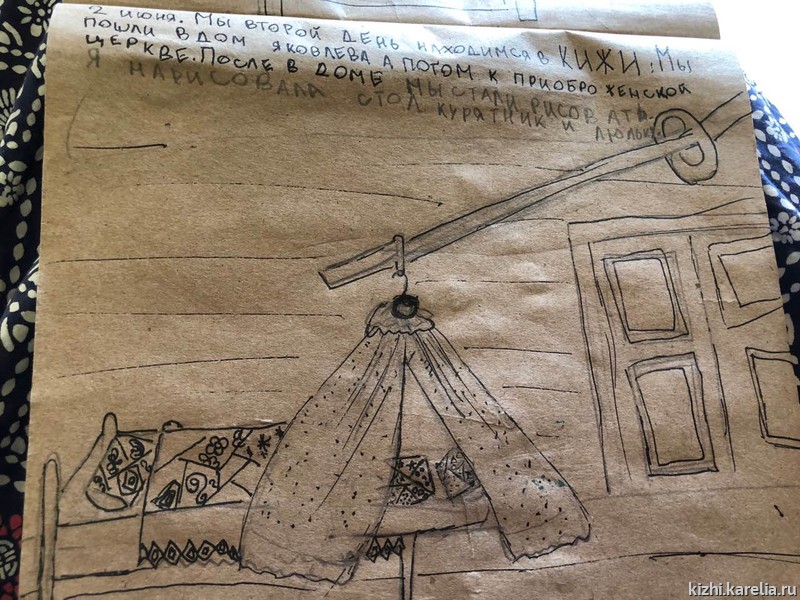 2 июня. Мы второй день находимся в КИЖИ. Мы
пошли в дом Яковлева а потом к приображенской
церкве. После в доме мы стали рисовать.
Я нарисовала стол курятник и люльку.
kizhi.karelia.ru